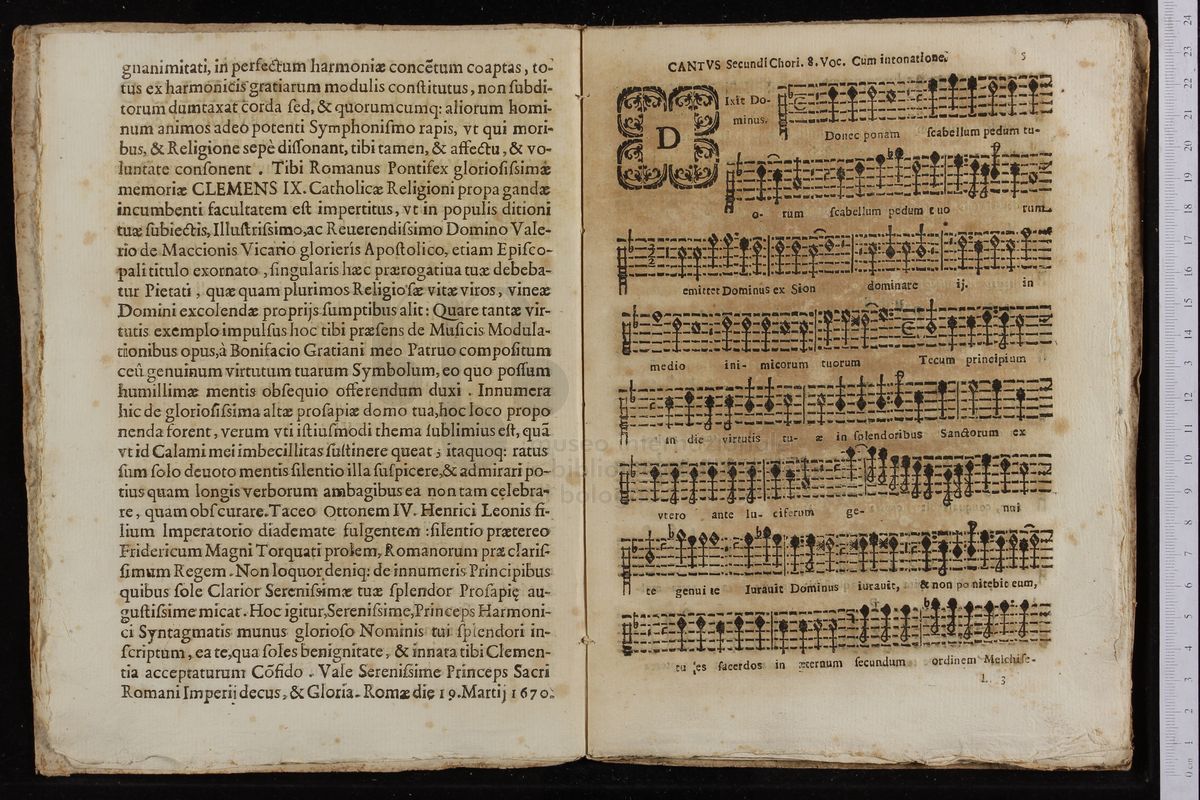 gnanimitati, in perfectum harmoniæ concẽtum coaptas, to-
tus ex harmonicis gratiarum modulis conſtitutus, non ſubdi-
torum dumtaxat corda ſed, & quorumcumq: aliorum homi-
num animos adeò potenti Symphoniſmo rapis, vt qui mori-
bus, & Religione sepè diſſonant, tibi tamen, & affectu, & vo-
luntate conſonent. Tibi Romanus Pontifex glorioſiſſimæ
memoriæ CLEMENS IX. Catholicæ Religioni propagandæ
incumbenti facultatem eſt impertitus, vt in populis ditioni
tuæ ſubiectis, Illuſtriſsimo, ac Reuerendiſsimo Domino Vale-
rio de Maccionis Vicario glorierís Apoſtolico, etiam Epiſco-
pali titulo exornato, ſingularis hæc prærogatiua tuæ debeba-
tur Pietati, quæ quam plurimos Religioſæ vitæ viros, vineæ
Domini excolendæ proprijs ſumptibus alit: Quare tantæ vir-
tutis exemplo impulſus hoc tibi præſens de Muſicis Modula-
tionibus opus, à Bonifacio Gratiani meo Patruo compoſitum
ceû genuinum virtutum tuarum Symbolum, eo quo poſſum
humillimæ mentis obſequio offerendum duxi. Innumera
hic de glorioſiſsima altæ proſapiæ domo tua, hoc loco propo
nenda forent, verum vti iſtiuſmodi thema ſublimius eſt, quã
vt id Calami mei imbecillitas ſuſtinere queat; itaquoq: ratus
ſum ſolo deuoto mentis ſilentio illa ſuſpicere, & admirari po-
tius quam longis verborum ambagibus ea non tam celebra-
re, quam obſcurare. Taceo Ottonem IV. Henrici Leonis fi-
lium Imperatorio diademate fulgentem: ſilentio prætereo
Fridericum Magni Torquati prolem, Romanorum præclariſ-
ſimum Regem. Non loquor deniq: de innumeris Principibus
quibus ſole Clarior Sereniſsimæ tuæ ſplendor Proſapię au-
guſtiſsime micat. Hoc igitur, Sereniſsime, Princeps Harmoni-
ci Syntagmatis munus glorioſo Nominis tui ſplendori in-
ſcriptum, ea te, qua ſoles benignitate, & innata tibi Clemen-
tia acceptaturum Cõfido. Vale Sereniſsime Princeps Sacri
Romani Imperij decus, & Gloria. Romæ die 19. Martij 1670.
CANTVS Secundi Chori. 8. Voc. Cum intonatione. 5
D Ixit Do-
minus. Donec ponam ſcabellum pedum tu-
o- rum ſcabellum pedum tuo rum.
emittet Dominus ex Sion dominare ij. in
medio ini- micorum tuorum Tecum principium
in die virtutis tu- æ in ſplendoribus Sanctorum ex
vtero ante lu- ciferum ge- nui
te genui te Iurauit Dominus iurauit, & non pœnitebit eum,
tu es ſacerdos in æternum ſecundum ordinem Melchiſe-
L 3